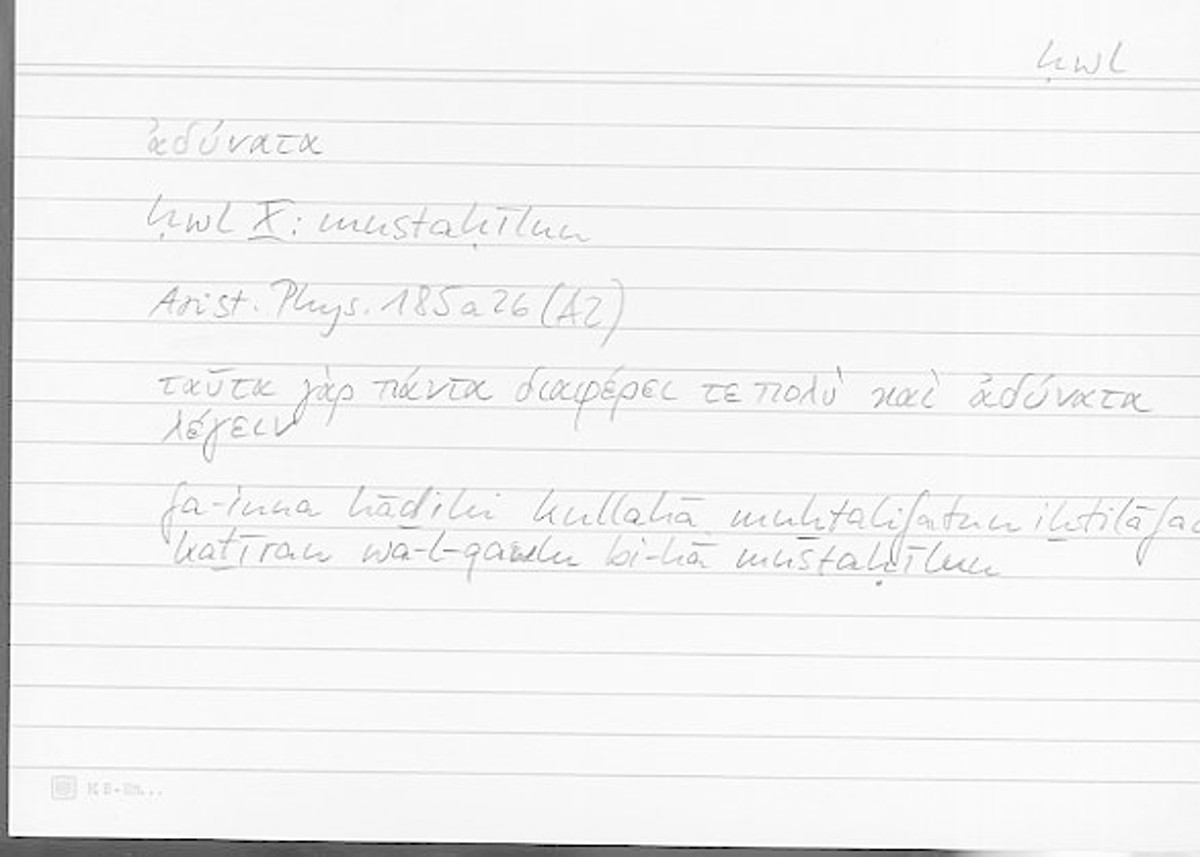 ḥwl
ἀδύνατα
ḥwl X: mustaḥīlun
Arist. Phys. 185a26 (A2)
ταῦτα γὰρ πάντα διαφέρει τε πολὺ καὶ ἀδύνατα
λέγειν
fa-inna hāḏihi kullahā muḫtalifatun iḫtilāfa
kaṯīran wa-l-qawlu bi-hā mustaḥīlun